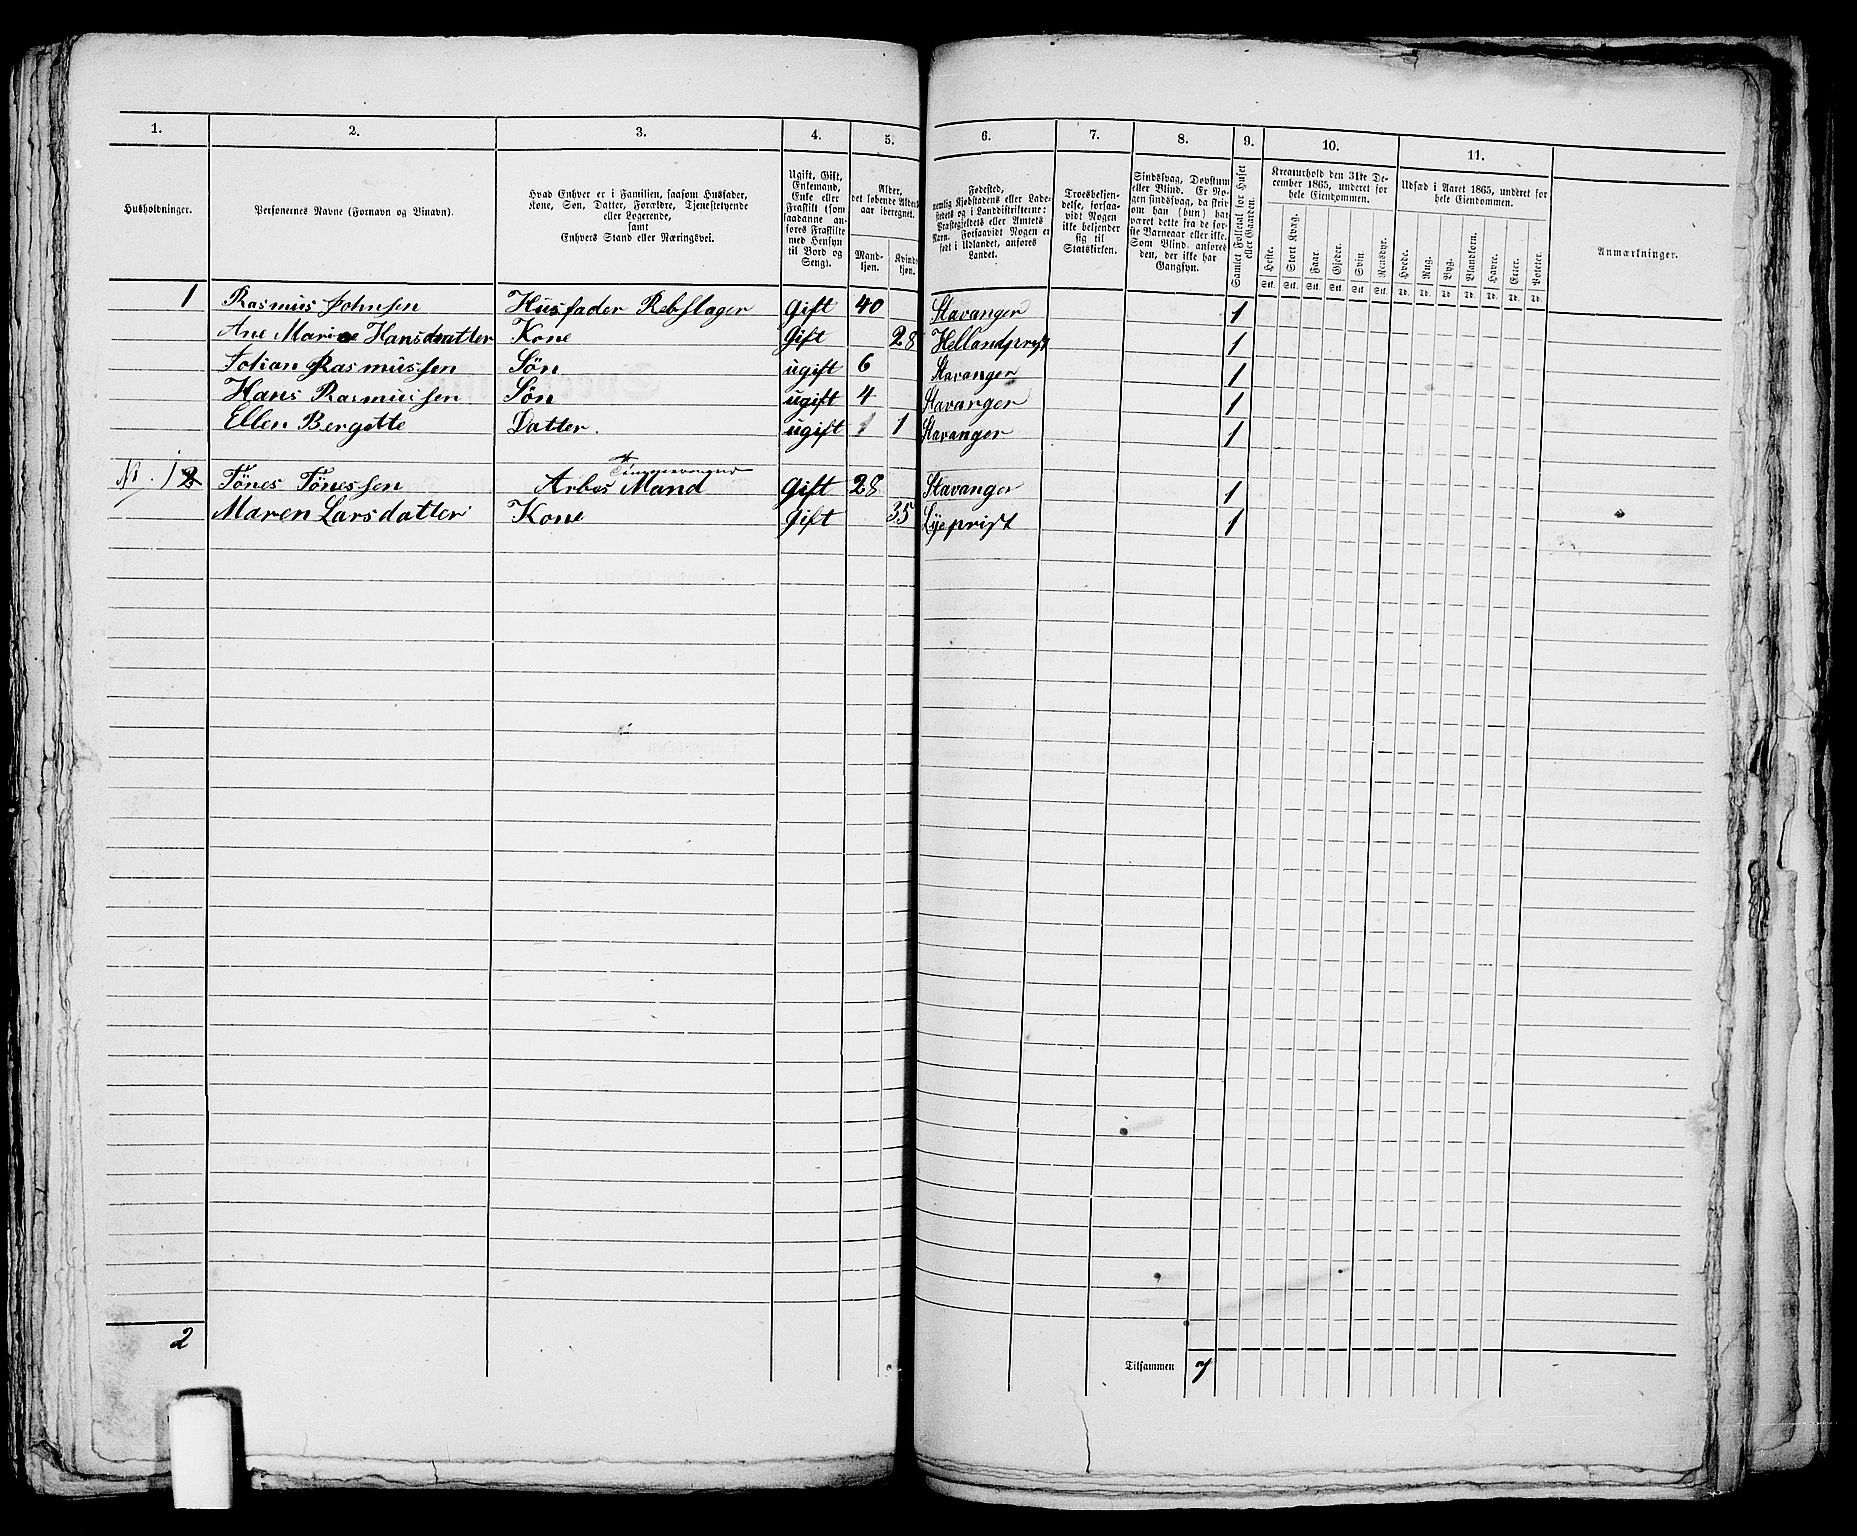 1. 2. 3. 4. 5. 6. 7. 8. 9. 10. 11.
Husholdninger.
Personernes Navne (Fornavn og Binavn).
Hvad Enhver er i Familien, saasom Husfader,
Kone, Søn, Datter, Forældre, Tjenestetyende
eller Logerende,
samt
Enhvers Stand eller Næringsvei.
Ugift, Gift,
Enkemand,
Enke eller
Fraskilt (som
saadanne an-
føres Fraskilte
med Hensyn
til Bord og
Seng).
Alder,
det løbende Alders-
aar iberegnet.
Mand-
kjøn.
Kvind-
kjøn.
Fødested,
nemlig Kjøbstadens eller Lade-
stedets og i Landdistrikterne:
Præstegjeldets eller Amtets
Navn. Forsaavidt Nogen er
født i Udlandet, anføres
Landet.
Troesbekjen-
delse, forsaa-
vidt Nogen
ikke bekjender
sig til
Statskirken.
Sindssvag, Døvstum
eller Blind. Er No-
gen sindssvag, da skriv
om han (hun) har
været dette fra de før-
ste Barneaar eller ikke.
Som Blind anføres
den, der ikke har
Gangsyn.
Samlet Folketal for Huset
eller Gaarden.
Kreaturhold den 31te De-
cember 1865, underet for
hele Eiendommen.
Heste. Stort Kvæg. Faar. Gjeder. Svin. Rensdyr.
Stk. Stk. Stk. Stk. Stk. Stk.
Udsæd i Aaret 1865, underet for
hele Eiendommen.
Hvede. Rug. Byg. Blandkorn. Havre. Erter. Poteter.
Td. Td. Td. Td. Td. Td. Td.
Anmærkninger.
1 Rasmus Johnsen Husfader Rebslager Gift 40 Stavanger 1
Ane Marie Hansdatter Kone Gift 28 Hellandprist 1
Tobian Rasmussen Søn ugift 6 Stavanger 1
Hans Rasmussen Søn ugift 4 Stavanger 1
Ellen Bergitte Datter. ugift 1 Stavanger 1
2 Tönes Tönessen Arbes Mand Gift 28 Stavanger 1
Maren Larsdatter Kone Gift 35 Lyeprist 1
2 Tilsammen 7